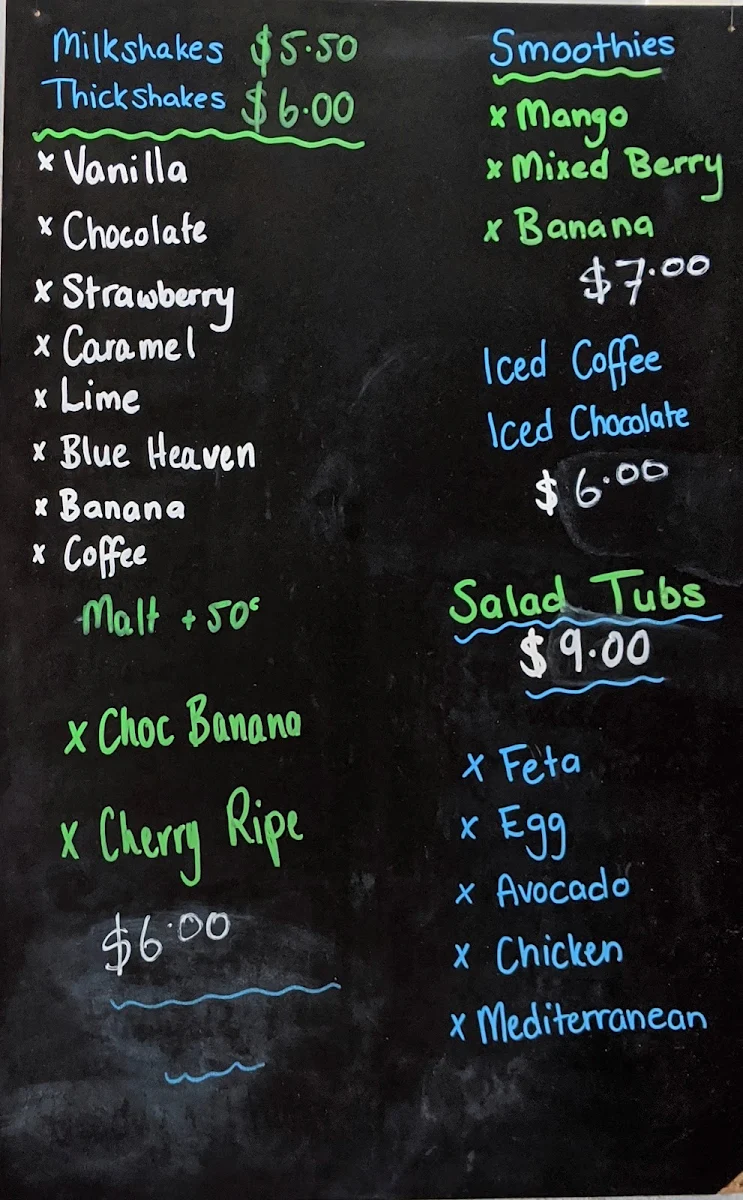 Milkshakes $5.50
Thickshakes $6.00
x Vanilla
x Chocolate
x Strawberry
x Caramel
x Lime
x Blue Heaven
x Banana
x Coffee
Malt + 50c
x Choc Banana
x Cherry Ripe
$6.00
Smoothies
x Mango
x Mixed Berry
x Banana
$7.00
Iced Coffee
Iced Chocolate
$6.00
Salad Tubs
$9.00
x Feta
x Egg
x Avocado
x Chicken
x Mediterranean